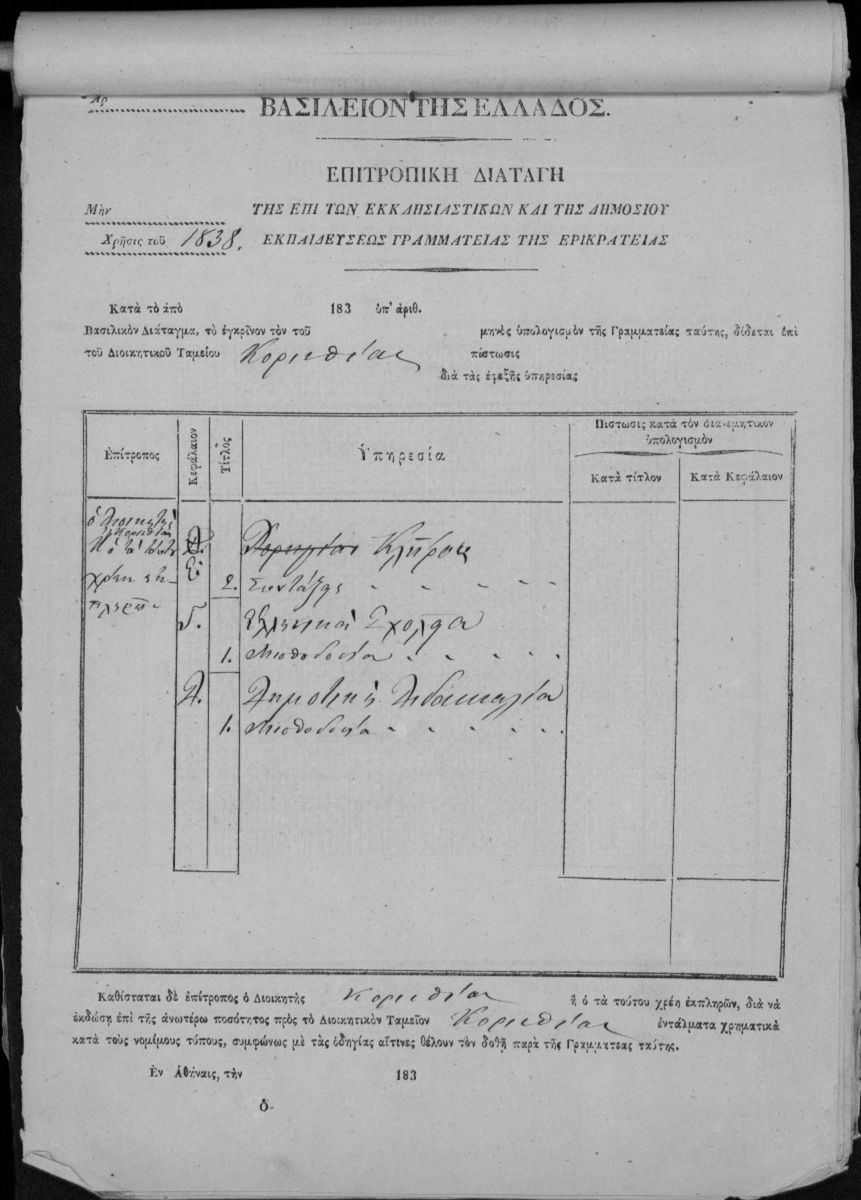 Αρ
ΒΑΣΙΛΕΙΟΝ ΤΗΣ ΕΛΛΑΔΟΣ.
ΕΠΙΤΡΟΠΙΚΗ ΔΙΑΤΑΓΗ
Μὴν
ΤΗΣ ΕΠΙ ΤΩΝ ΕΚΚΛΗΣΙΑΣΤΙΚΩΝ ΚΑΙ ΤΗΣ ΔΗΜΟΣΙΟΥ
Χρῆσις τοῦ 1838.
ΕΚΠΑΙΔΕΥΣΕΩΣ ΓΡΑΜΜΑΤΕΙΑΣ ΤΗΣ ΕΡΙΚΡΑΤΕΙΑΣ
Κατὰ τὸ ἀπὸ 183 ὑπ' ἀριθ.
Βασιλικὸν Διάταγμα, τὸ ἐγκρῖνον τὸν τοῦ μηνὸς ὑπολογισμὸν τῆς Γραμματείας ταύτης, δίδεται ἐπὶ
τοῦ Διοικητικοῦ Ταμείου Κορινθίας πίστωσις
διὰ τὰς ἑφεξῆς ὑπηρεσίας
Ἐπίτροπος
Κεφάλαιον
Τίτλος
Ὑπηρεσία
Πίστωσις κατὰ τὸν διανεμητικὸν
ὑπολογισμόν
Κατὰ τίτλον
Κατὰ Κεφάλαιον
ὁ Διοικητὴς
Κορινθίας
ἢ ὁ τὰ τούτου
χρέη ἐκ-
πληρῶν
Κλῆρος
2. Συντάξεις
Γ. Ἑλληνικὰ Σχολεῖα
1. Μισθοδοσία
Δ. Δημοτικὴ Διδασκαλία
1. Μισθοδοσία
Καθίσταται δὲ ἐπίτροπος ὁ Διοικητὴς Κορινθίας ἢ ὁ τὰ τούτου χρέη ἐκπληρῶν, διὰ νὰ
ἐκδώσῃ ἐπὶ τῆς ἀνωτέρω ποσότητος πρὸς τὸ Διοικητικὸν Ταμεῖον Κορινθίας ἐντάλματα χρηματικὰ
κατὰ τοὺς νομίμους τύπους, συμφώνως μὲ τὰς ὁδηγίας αἵτινες θέλουν τὸν δοθῆ παρὰ τῆς Γραμματεας ταύτης.
Ἐν Ἀθήναις, τὴν 183
δ-